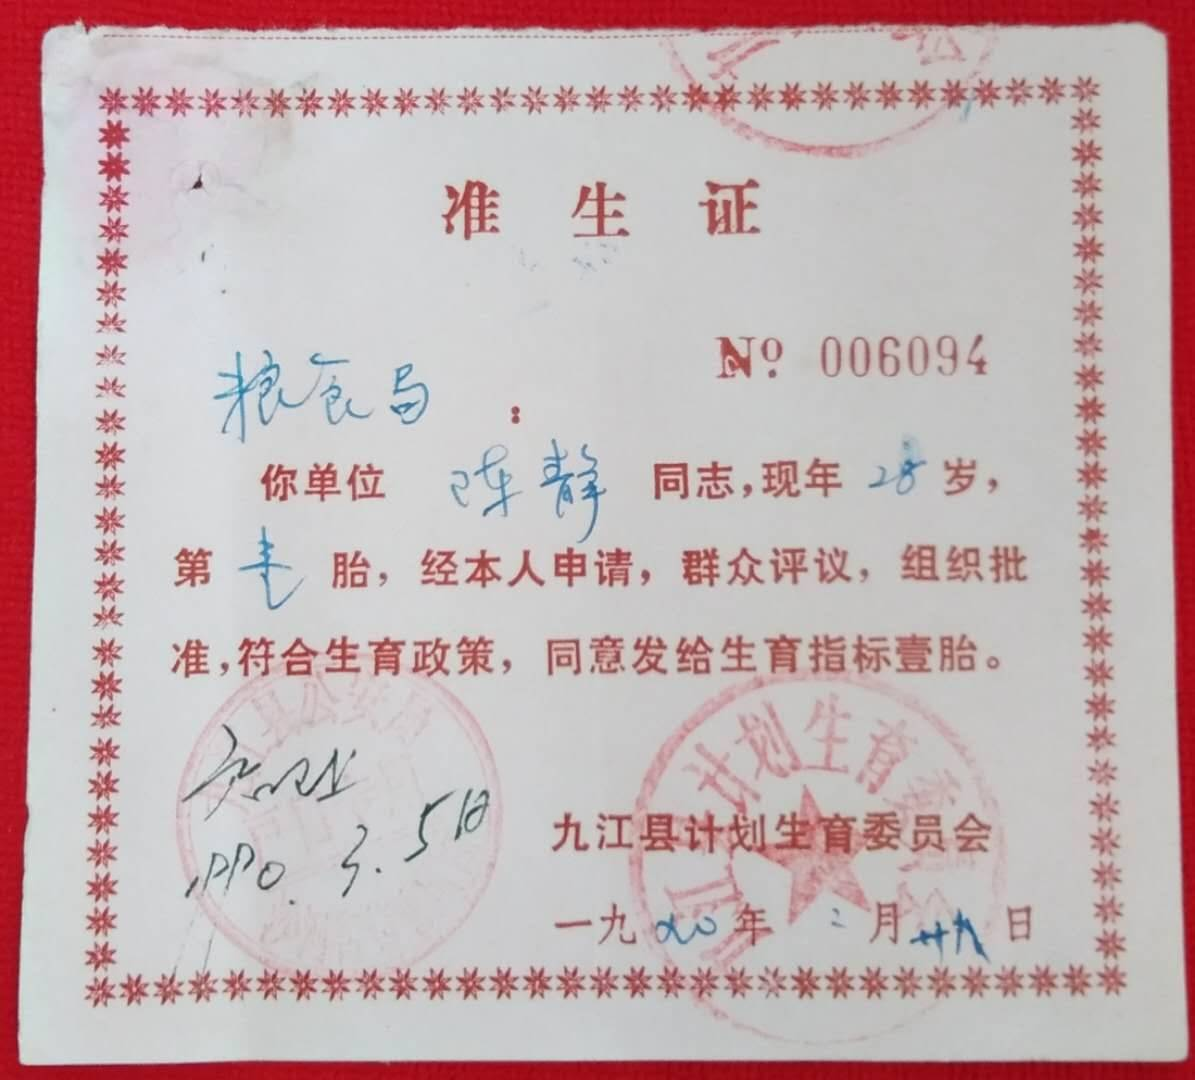 准生证
№ 006094
粮食局：
你单位 陈静 同志，现年 28 岁，
第 壱 胎，经本人申请，群众评议，组织批
准，符合生育政策，同意发给生育指标壹胎。
计划生育委员会
九江县计划生育委员会
一九九0年 二月 廿九日
1990.3.5日